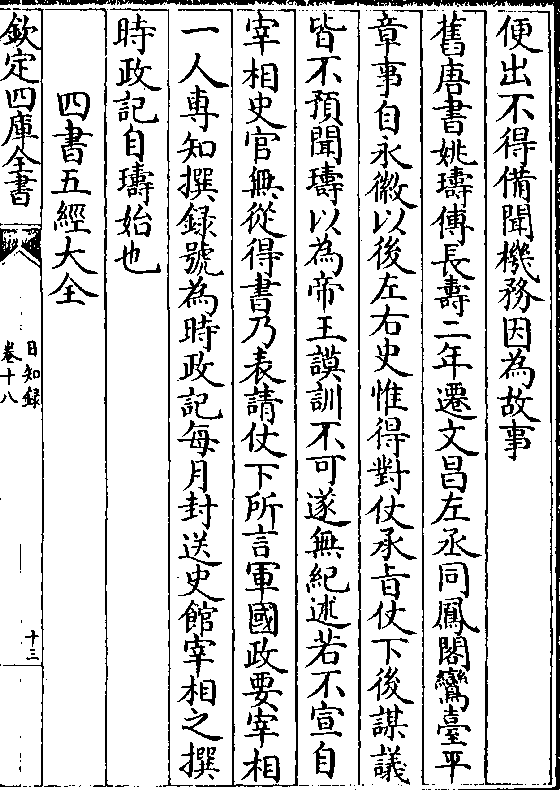 便出不得備聞機務因為故事
舊唐書姚璹傳長壽二年遷文昌左丞同鳳閣鸞臺平
章事自永徽以後左右史惟得對仗承旨仗下後謀議
皆不預聞璹以為帝王謨訓不可遂無紀述若不宣自
宰相史官無從得書乃表請仗下所言軍國政要宰相
一人専知撰録號為時政記每月封送史館宰相之撰
時政記自璹始也
四書五經大全
欽定四庫全書
日知録
卷十八
十三